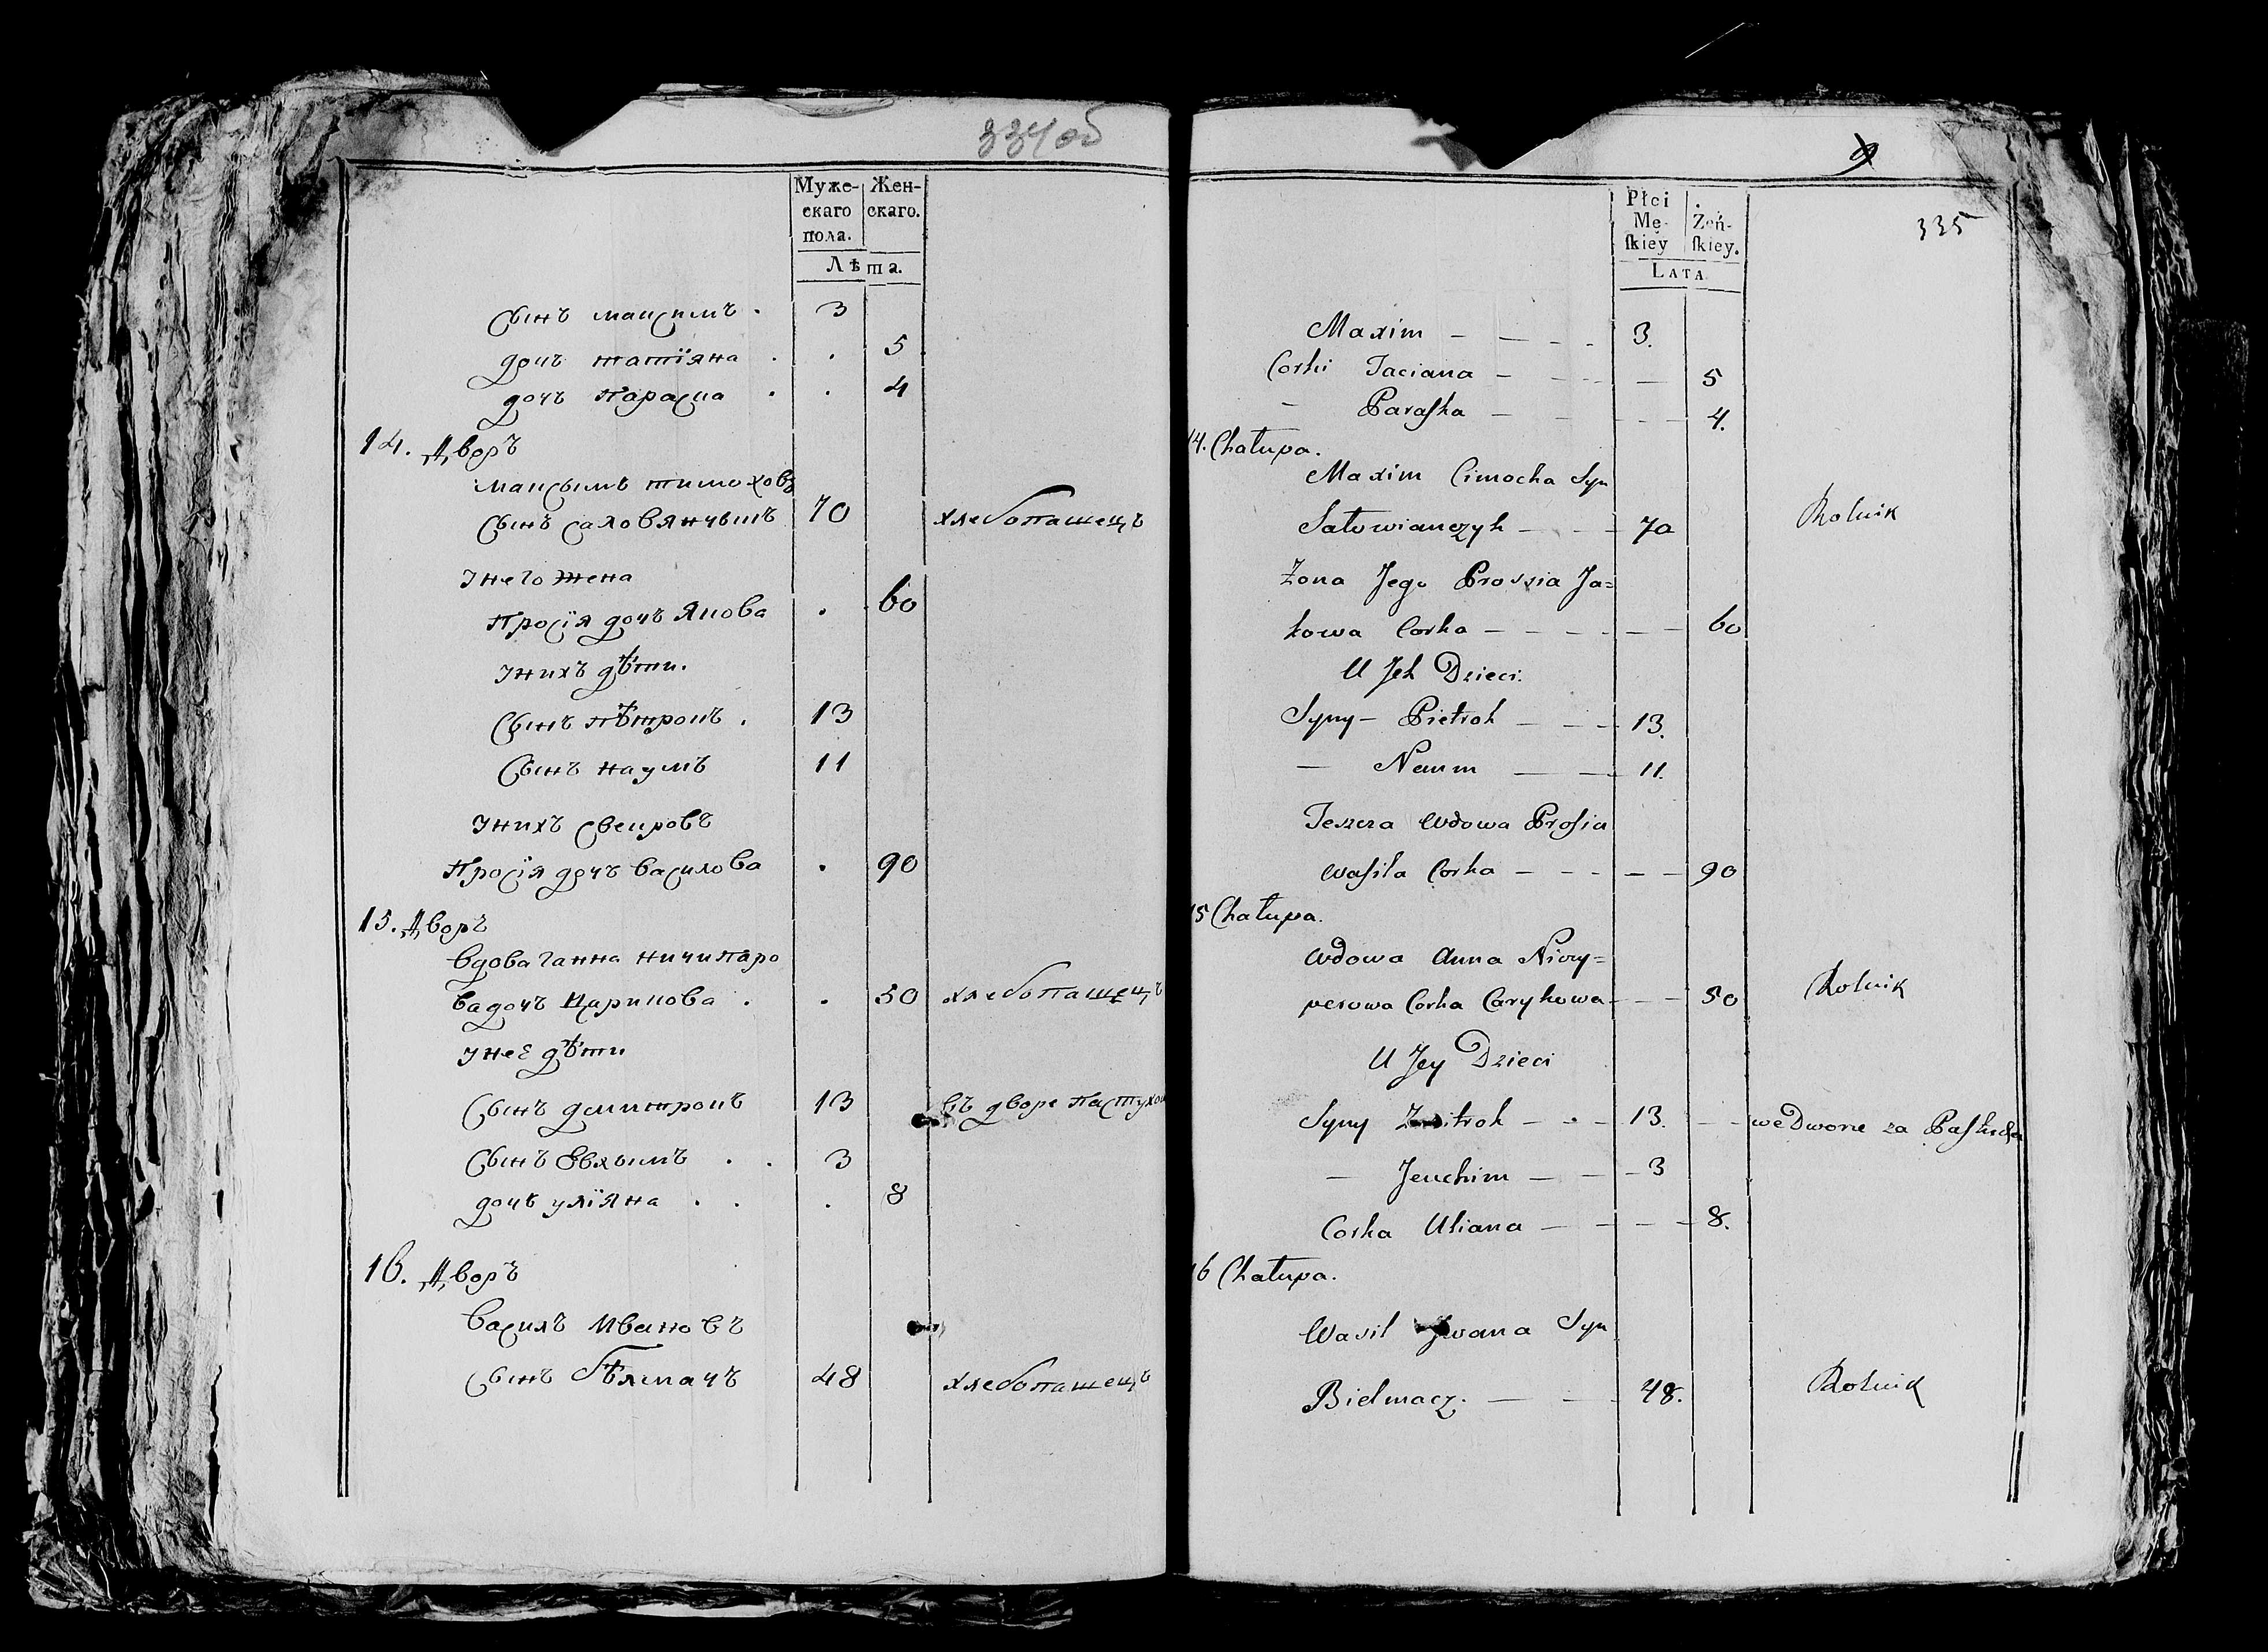 334об
Муже-
скаго
пола.
Жен-
скаго.
Лѣта.
сынъ максимъ . 3
дочъ татїяна . . 5
дочъ параска . . 4
14. дворъ
максымъ тимоховъ
сынъ саловянчыкъ 70 хлебопашецъ
унего жена
просїя дочъ Якова . 60
унихъ дѣти.
сынъ пѣтрокъ . 13
сынъ наумъ 11
унихъ свекровъ
просїя дочъ василова . 90
15. дворъ
вдова ганна ничипаро
ва дочъ Царикова . . 50 хлебопашецъ
унеѣ дѣти
сынъ дмитрокъ 13 въ дворе пастухом
сынъ Евхымъ . . 3
дочъ улїяна . . . 8
16. дворъ
василъ Ивановъ
сынъ бѣлмачъ 48 хлебопашецъ
9
335
Płci
Mę-
ſkiey
Żeń-
ſkiey.
LATA
Maxim – – – – 3.
Corki Taciana – – – – 5
– Paraſka – – – – 4.
14. Chałupa.
Maxim Cimocha Syn
Sałowianczyk – – – 70 Rolnik
Żona Jego Prossia Ja=
kowa Corka – – – – – – 60
U Jch Dzieci.
Syny – Pietrok – – – 13.
– Naum – – 11.
Teszcza Wdowa Proſia
Waſila Corka – – – – – 90
15 Chałupa.
Wdowa Anna Niczy=
perowa Corka Carykowa – – – 50 Rolnik
U Jey Dzieci
Syny Zmitrok – – – 13. – – we Dworze za Paſtucha
– Jeuchim – – – 3
Corka Uliana – – – – 8.
16 Chałupa.
Wasil Jwana Syn
Bielmacz. – – – 48. Rolnik